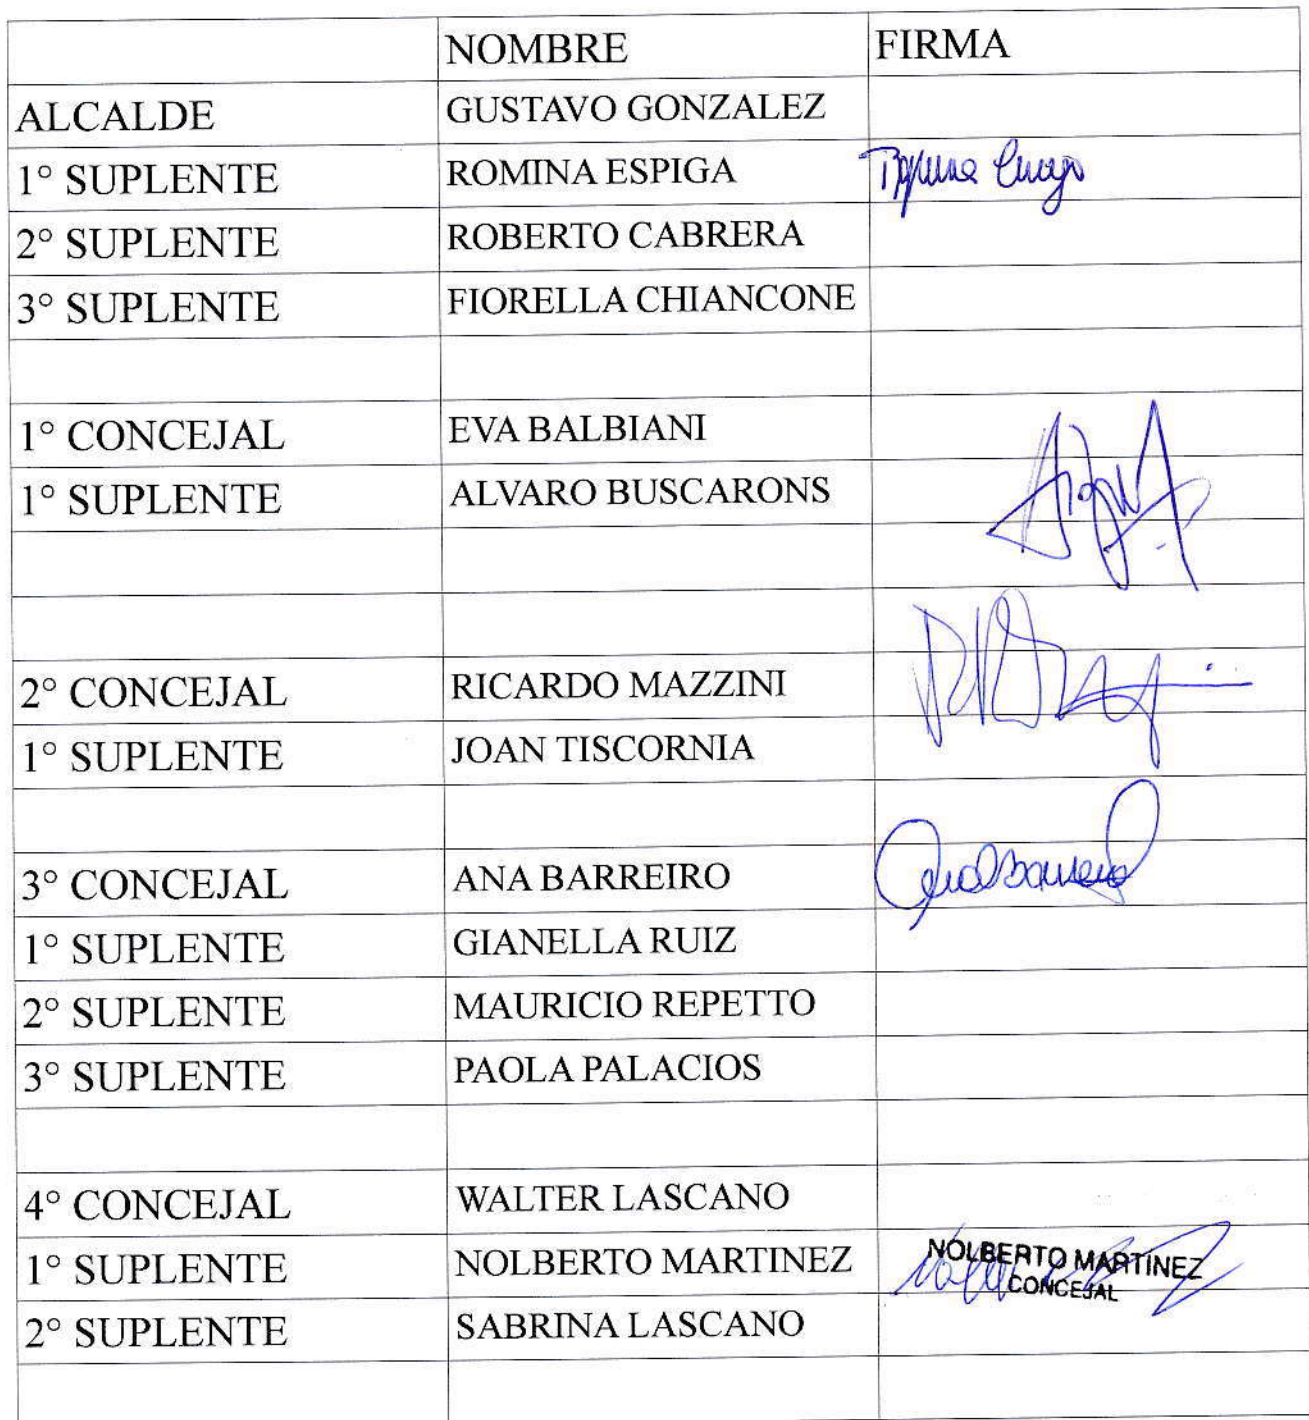 NOMBRE FIRMA
ALCALDE GUSTAVO GONZALEZ
1° SUPLENTE ROMINA ESPIGA Romina
2° SUPLENTE ROBERTO CABRERA
3° SUPLENTE FIORELLA CHIANCONE
1° CONCEJAL EVA BALBIANI
1° SUPLENTE ALVARO BUSCARONS
2° CONCEJAL RICARDO MAZZINI
1° SUPLENTE JOAN TISCORNIA
3° CONCEJAL ANA BARREIRO Ana Barreiro
1° SUPLENTE GIANELLA RUIZ
2° SUPLENTE MAURICIO REPETTO
3° SUPLENTE PAOLA PALACIOS
4° CONCEJAL WALTER LASCANO
1° SUPLENTE NOLBERTO MARTINEZ NOLBERTO MARTINEZ
CONCEJAL
2° SUPLENTE SABRINA LASCANO